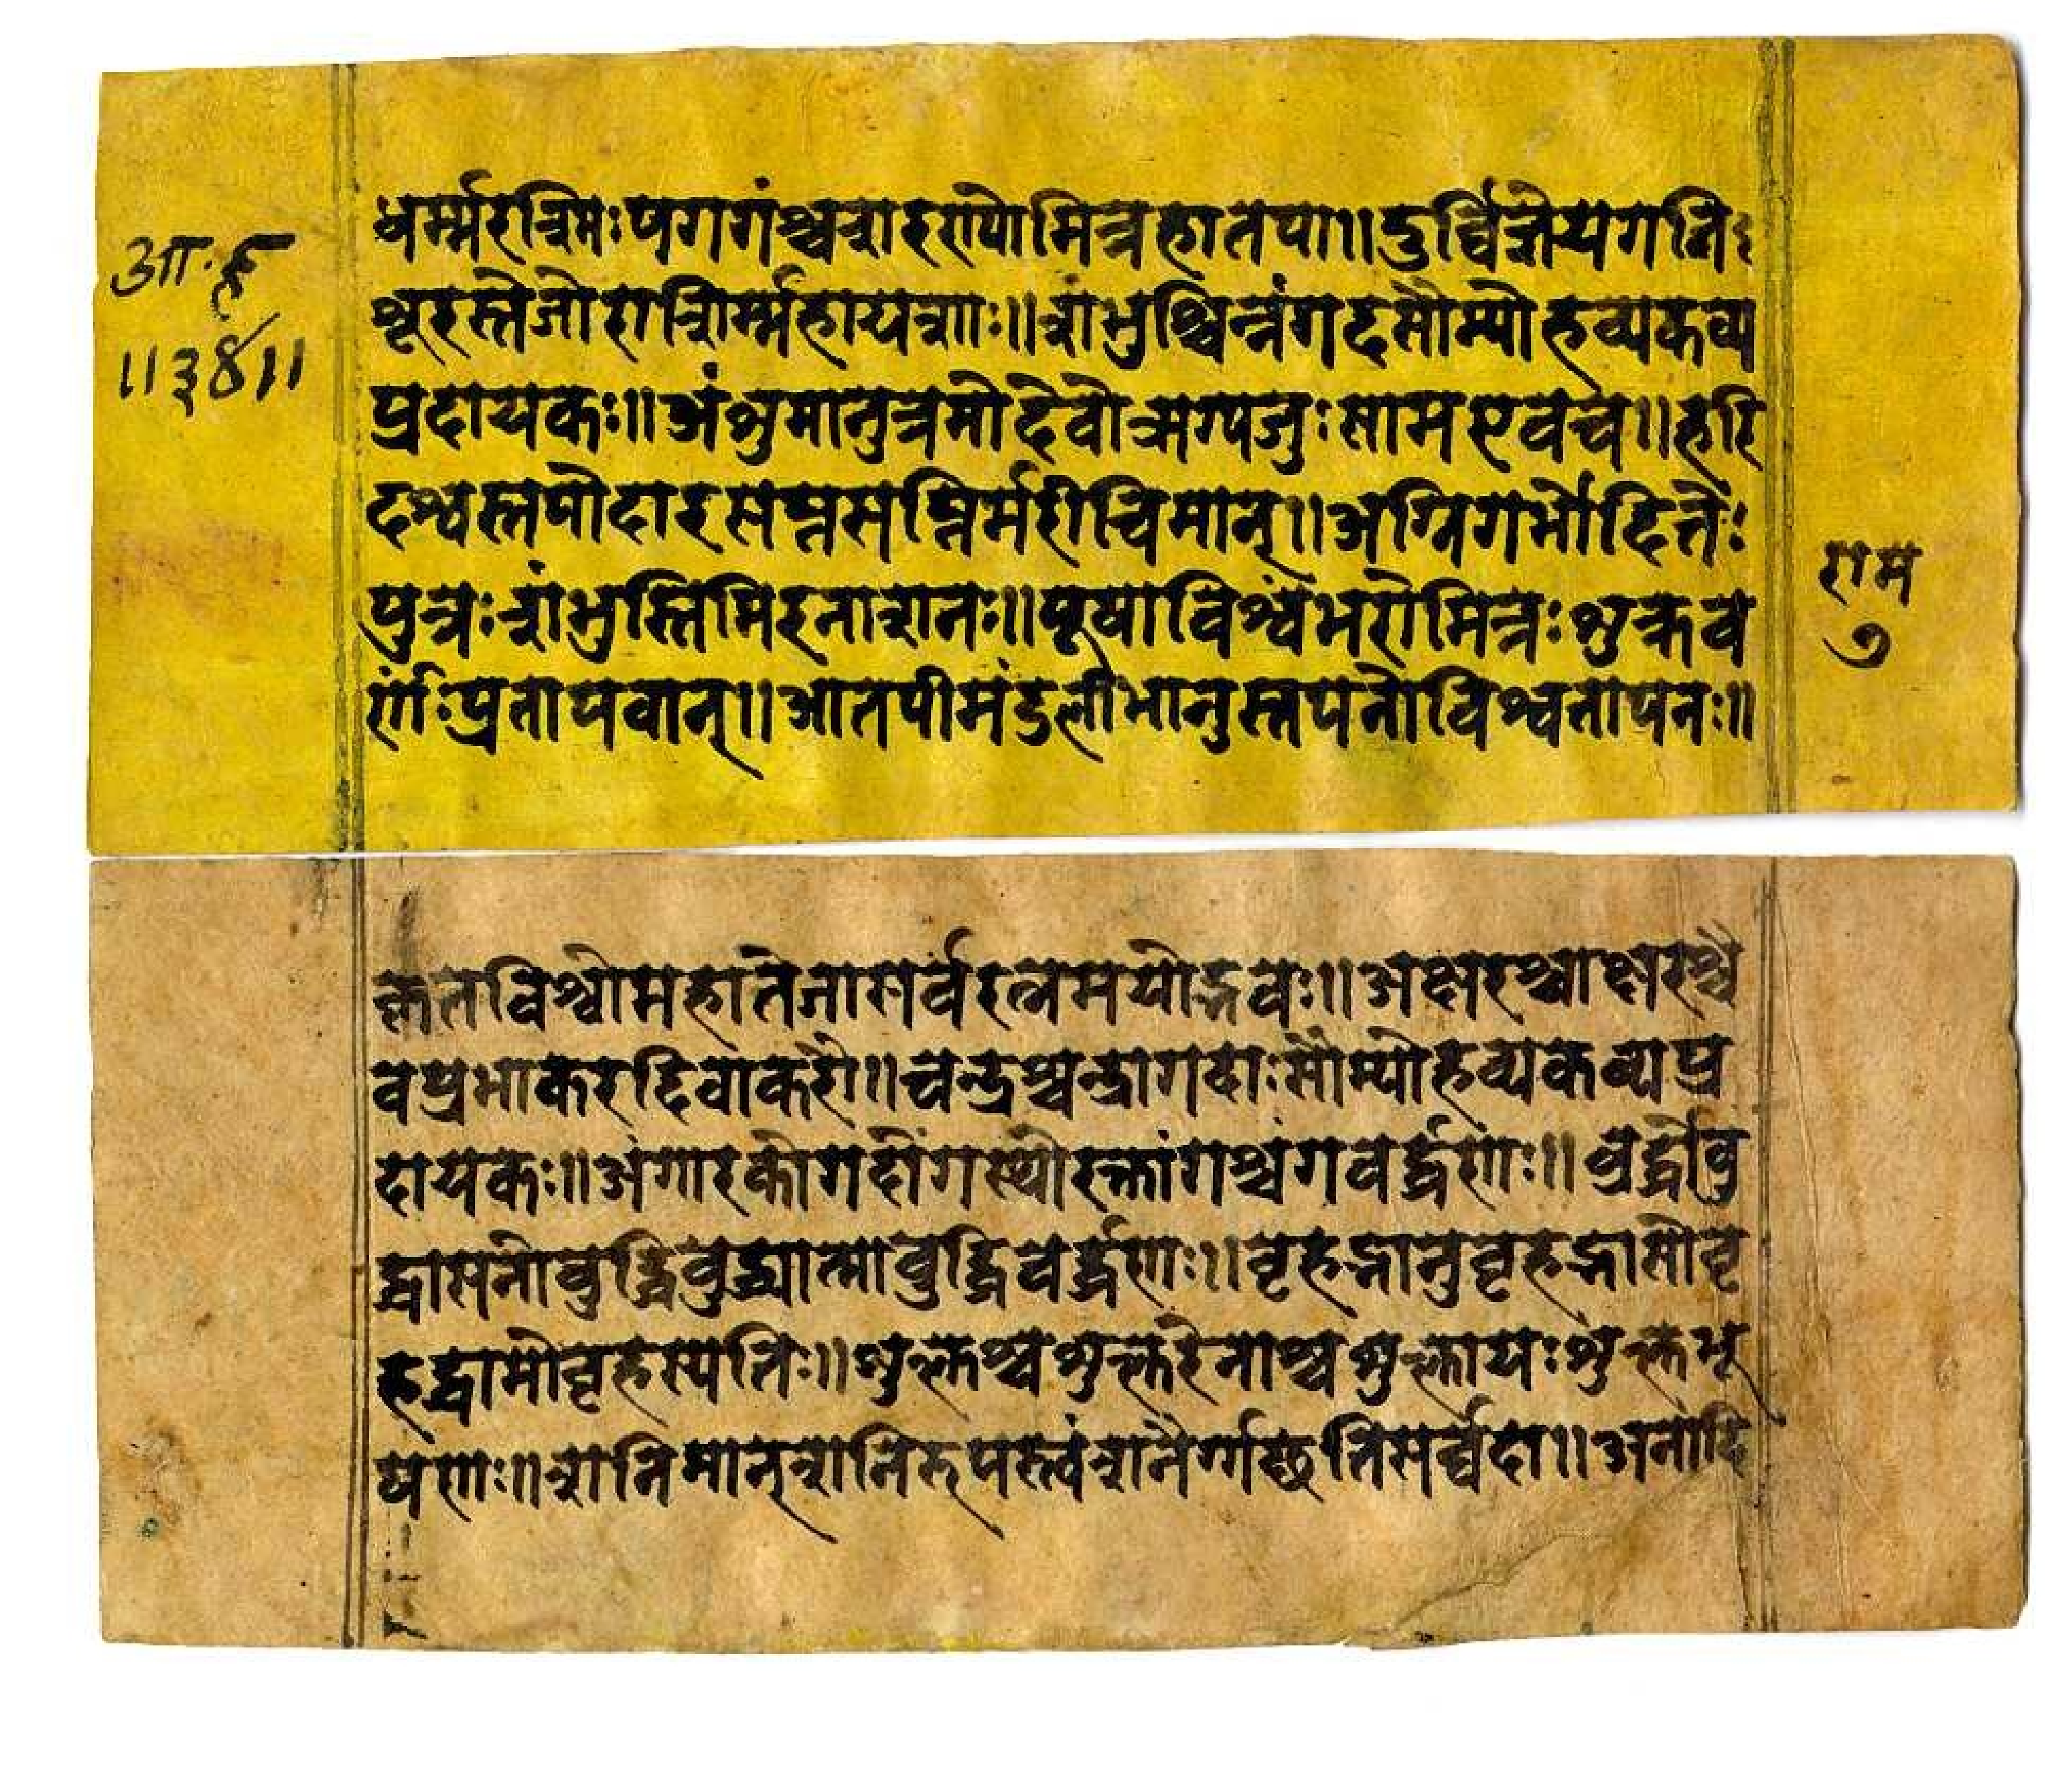 धर्म्मरश्मिः पगगंश्चराहरायोमित्रहातपा॥दुर्व्विज्ञेयगति:
शूरस्तेजोराशिर्म्महायशाः॥शंभुश्चित्रंगदसौम्योहव्यकव्य
प्रदायकः॥अंशुमानुत्रमोदेवोऋग्यजुःसामएवच॥हरि
दश्वस्तपोदारसप्तसप्तिर्मरीचिमान्॥अग्निगर्भोदितेः
पुत्रःशंभुस्तिमिरनाशनः॥पूषाविश्वंभरोमित्रःशुक्रव
र्णःप्रतापवान्॥आतपीमंडलीभानुस्तपनोविश्वतापनः॥
आ.हृ
॥३४॥
राम
७
कृतविश्वोमहातेजाशर्वरत्नमयोद्भवः॥अक्षरश्चाक्षरश्चै
वप्रभाकरदिवाकरो॥चन्द्रश्चन्द्रागदाःसौम्योहव्यकव्यप्र
दायकः॥अंगारकोगदोंगस्थोरक्तांगश्चंगवर्द्धणः॥ब्रुद्धोबु
द्धासनोबुद्धिबुद्ध्यात्माबुद्धिवर्द्धणः॥बृहद्भानुबृहद्भासोबृ
हद्धामोबृहस्पतिः॥शुक्लश्चशुक्लरेनाश्चशुक्लायःशुंक्लभू
षणः॥शनिमान्शनिरूपस्त्वंशनैर्गाच्छतिसर्व्वदा॥अनादि